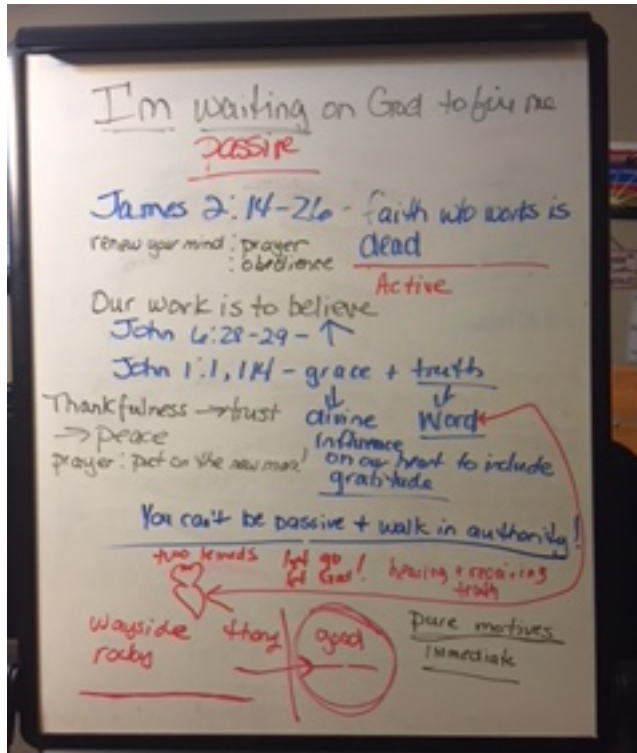 I'm waiting on God to fix me
passive
James 2:14-26 - faith w/o works is
dead
renew your mind : prayer
: obedience
Active
Our work is to believe
John 6:28-29 - ↑
John 1:1, 14 - grace + truth
Thankfulness → trust
→ peace
divine Word
Influence
prayer : put on the new man!
on our heart to include
gratitude
You can't be passive + walk in authority!
two
let go
let God!
hearing + receiving
truth
wayside thorny good
rocky
pure motives
immediate